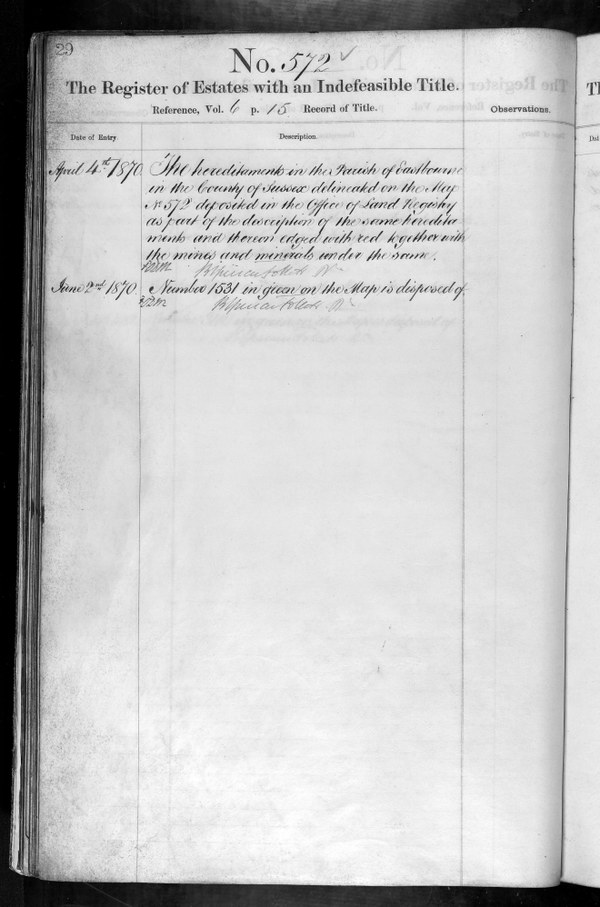 29
No. 572
The Register of Estates with an Indefeasible Title.
Reference, Vol. 6 p. 15 Record of Title.
Observations.
Date of Entry
Description.
April 4th 1870
The hereditaments in the Parish of Eastbourne
in the County of Sussex delineated on the Map
No 572 deposited in the Office of Land Registry
as part of the description of the same heredita
ments and thereon edged with red together with
the mines and minerals under the same.
June 2nd 1870
Number 1531 in green on the Map is disposed of